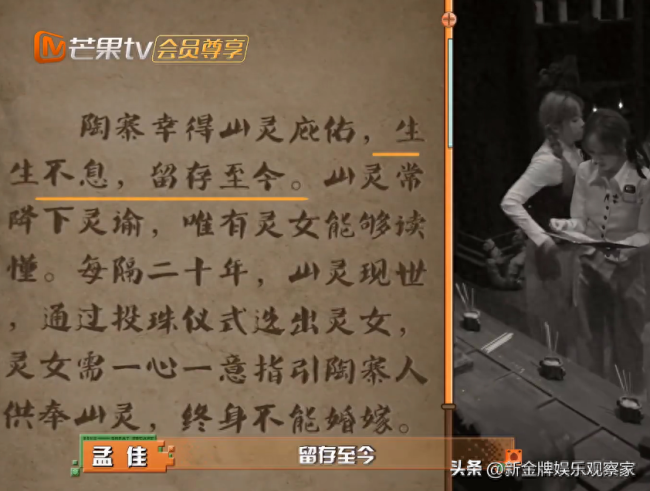 芒果tv 会员尊享
陶寨幸得山灵庇佑，生
生不息，留存至今。山灵常
降下灵谕，唯有灵女能够读
懂。每隔二十年，山灵现世
，通过投珠仪式选出灵女，
灵女需一心一意指引陶寨人
供奉山灵，终身不能婚嫁。
孟佳
留存至今
头条 @新金牌娱乐观察家